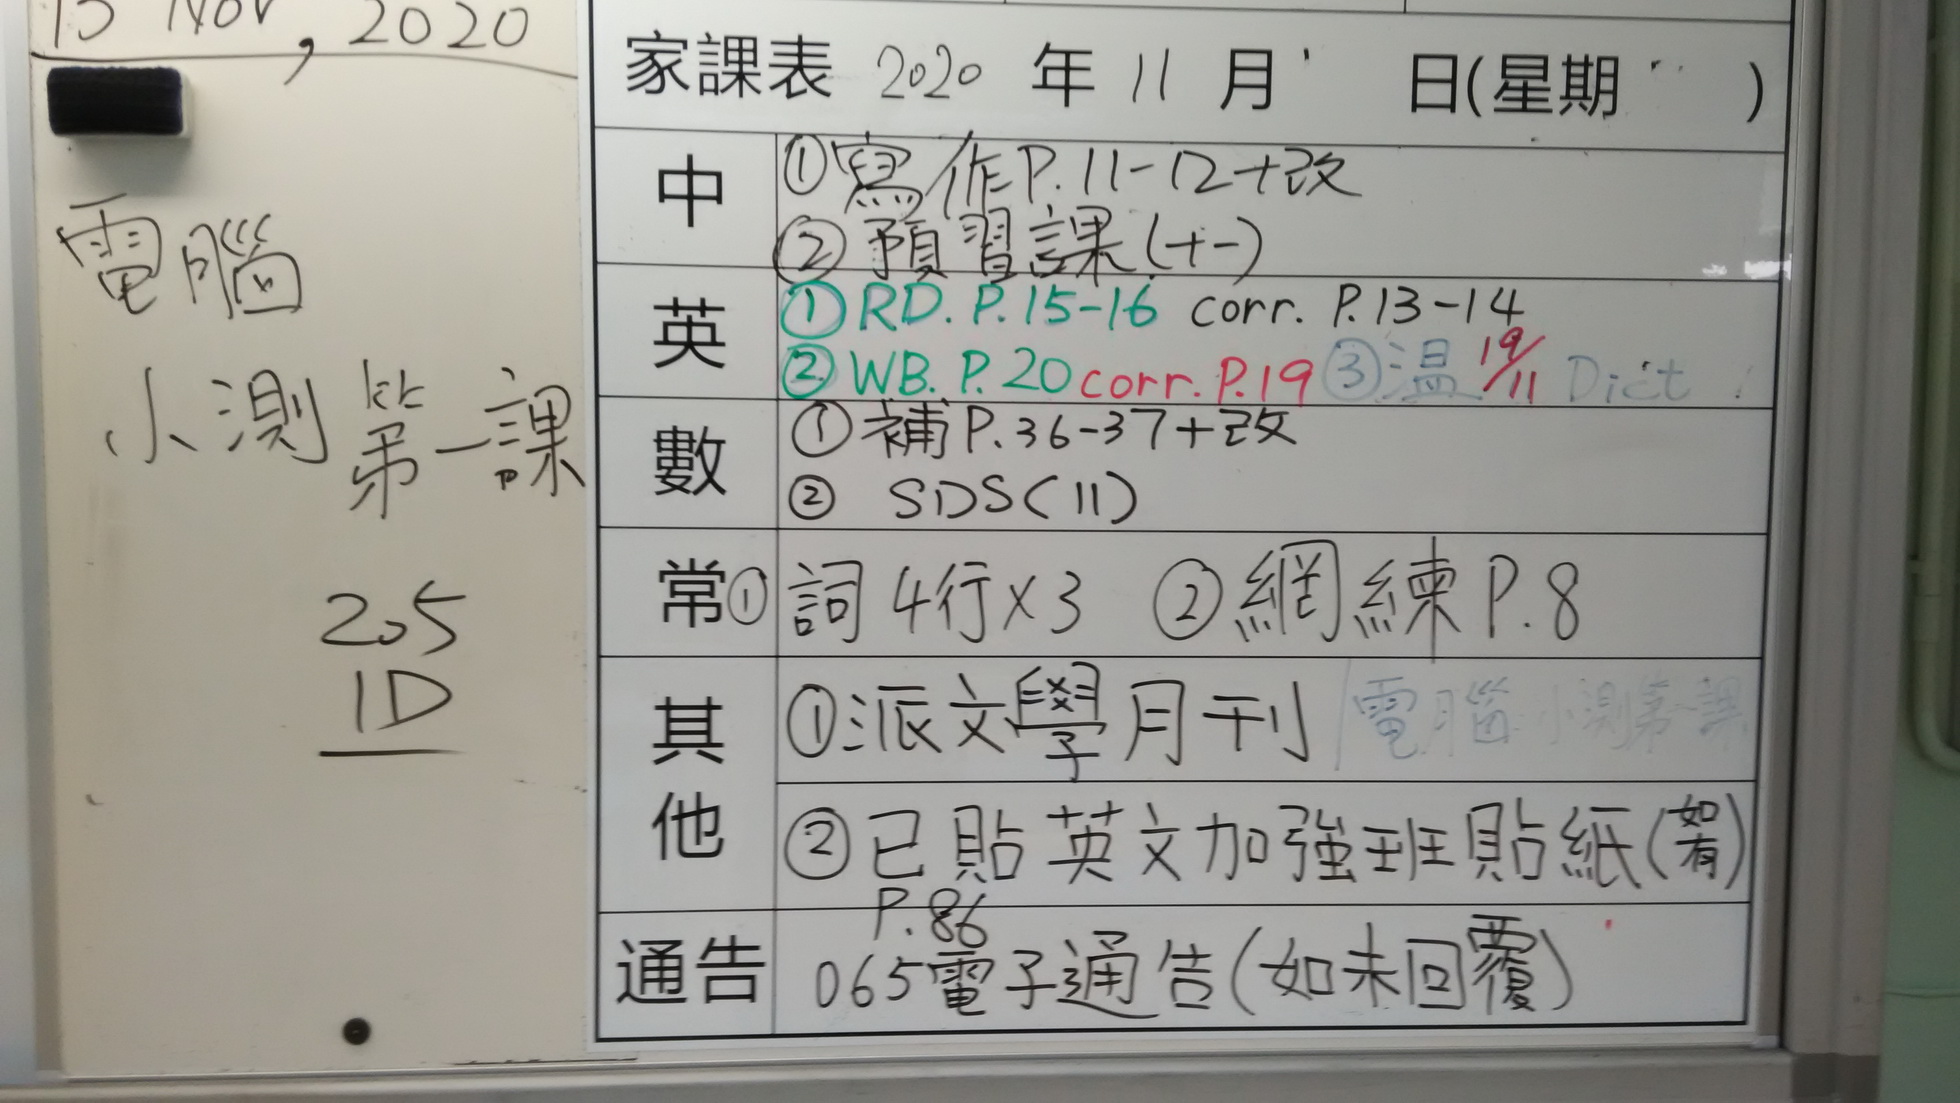 Nov, 2020
電腦
小測第一課
205
1D
家課表 2020 年 11 月 日(星期 )
中 ①寫作P.11-12+改
②預習課(十一)
英 ①RD. P.15-16 corr. P.13-14
②WB. P.20 corr. P.19 ③溫 19/11 Dict
數 ①補P.36-37+改
② SDS(11)
常 ①詞4行x3 ②網練P.8
其他 ①派文學月刊 電腦小測第一課
②已貼英文加強班貼紙(如有)
P.86
通告 065電子通告(如未回覆)